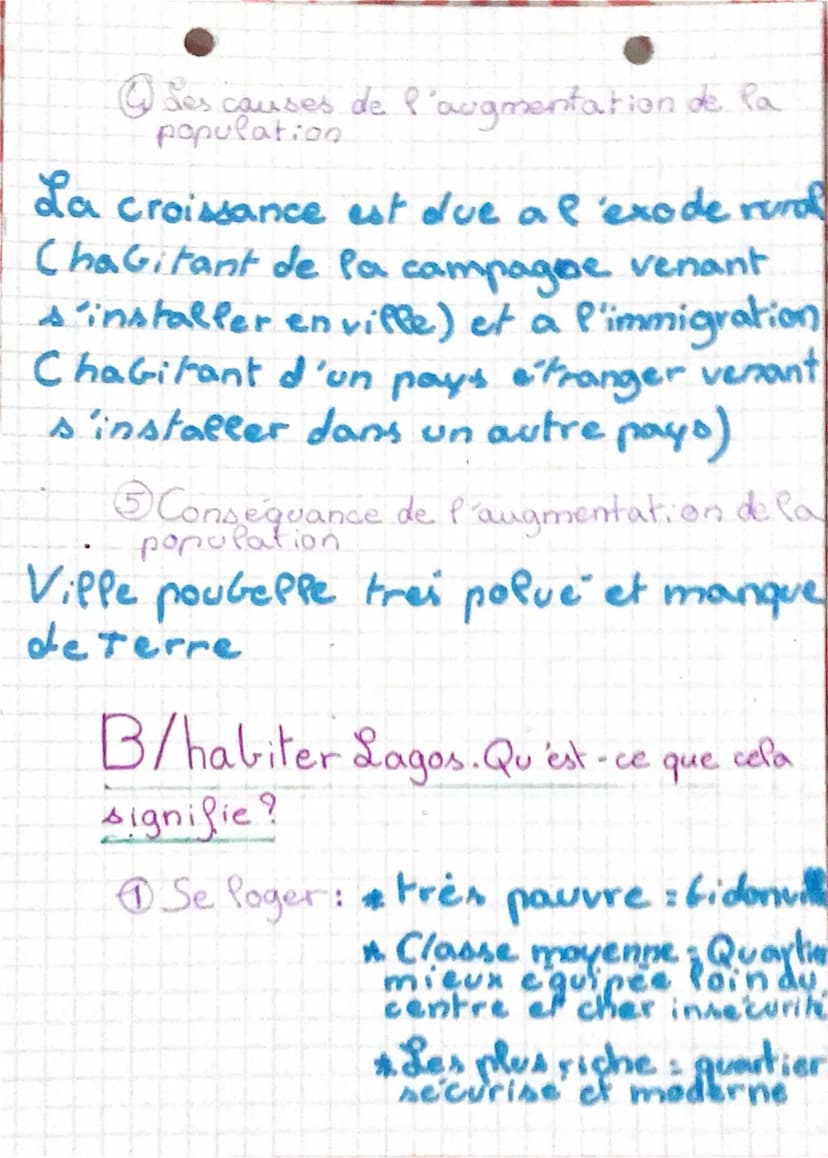 ④ Les causes de l'augmentation de la
population
La croissance est due a l'exode rural
(habitant de la campagne venant
s'installer en ville) et a l'immigration
(habitant d'un pays étranger venant
s'installer dans un autre pays)
⑤ Conséquance de l'augmentation de la
population
Ville poubelle tres polué et manque
de terre
B/habiter Lagos. Qu'est-ce que cela
signifie?
① Se loger: * très pauvre = bidonvill
* Classe moyenne = Quartier
mieux équipée loin du
centre et cher insécurité
* Les plus riche = quartier
sécurisé et moderne